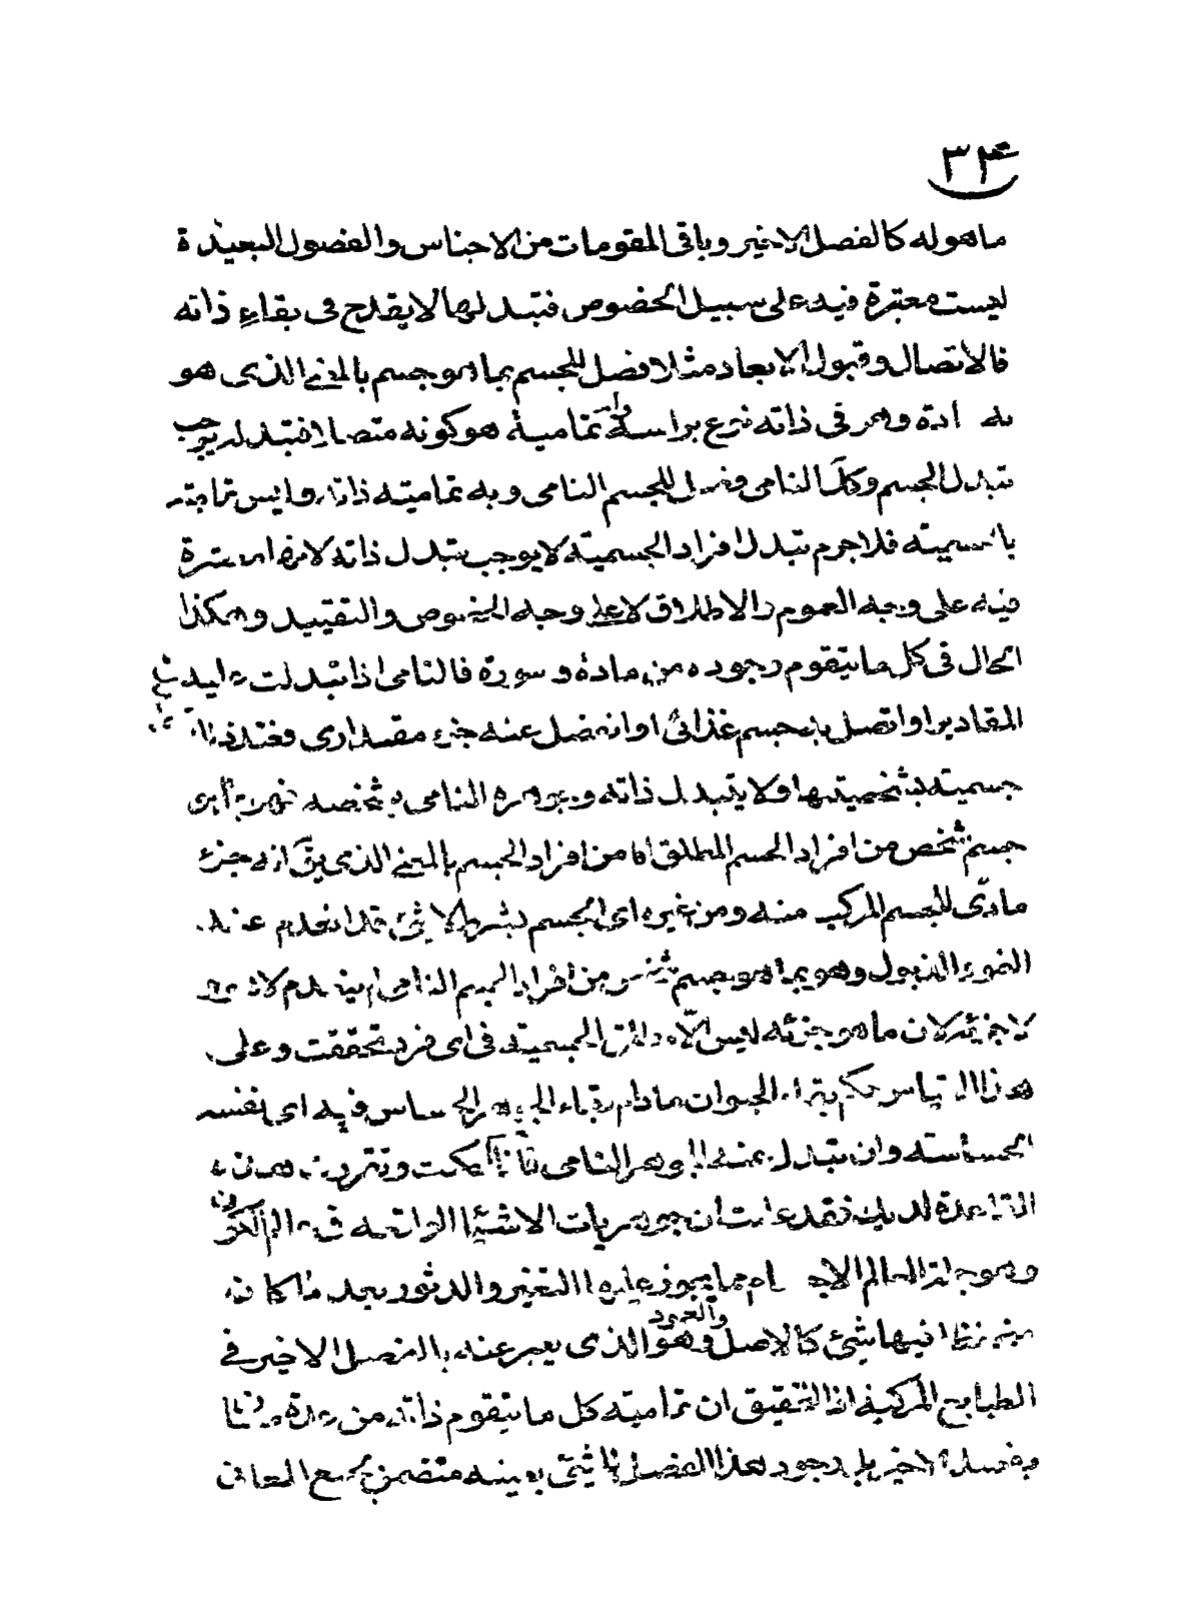 ٣٤
ما هو له كالفصل الاخير وباقى المقومات من الاجناس والفصول البعيدة
ليست معتبرة فيه على سبيل الخصوص فتبدلها لا يقدح فى بقاء ذاته
فالاتصال وقبول الابعاد مثلا فصل للجسم بما هو جسم بالمعنى الذى هو
به مادة وهو فى ذاته نوع براسه وله تمامية هو كونه متصلا فتبدله يوجب
تبدل الجسم وكك النامى فصل للجسم النامى وبه تمامية ذاته وليس تماميته
بالجسمية فلا جرم تبدل افراد الجسمية لا يوجب تبدل ذاته لانها معتبرة
فيه على وجه العموم والاطلاق لا على وجه الخصوص والتقييد وهكذا
الحال فى كل ما يتقوم وجوده من مادة وصورة فالنامى اذا تبدلت عليه
المقادير او اتصل به جسم غذائى او انفصل عنه جزء مقدارى فتبدلت
جسمية بشخصيتها ولا يتبدل ذاته وجوهره النامى بشخصه فهو بما هو
جسم شخص من افراد الجسم المطلق اى من افراد الجسم بالمعنى الذى يق انه جزء
مادى للجسم المركب منه ومن غيره اى الجسم بشرط لا شئ قد انعدم عند
النمو والذبول وهو بما هو جسم شخص من افراد الجسم النامى لم ينعدم لا هو
لا جزئه لان ما هو جزئه ليس الا مطلق الجسمية فى اى فرد تحققت وعلى
هذا القياس حكم بقاء الحيوان ما دام بقاء الجوهر الحساس فيه اى نفسه
الحساسة وان تبدل عنه الجوهر النامى فاذا احكمت وتقررت هذه
القاعدة لديك فقد علمت ان جوهريات الاشياء الواقعة فى عالم الكون
وهو جملة العالم الاجسام مما يجوز عليها التغير والدثور بعد ما كانه
فيه فيها شئ كالاصل والعمود وهو الذى يعبر عنه بالفصل الاخير فى
الطبايع المركبة اذ التحقيق ان تمامية كل ما يتقوم ذاته من عدة
بفصله الاخير بل وجود هذا الفصل لشئ بعينه متضمن لجميع المعانى